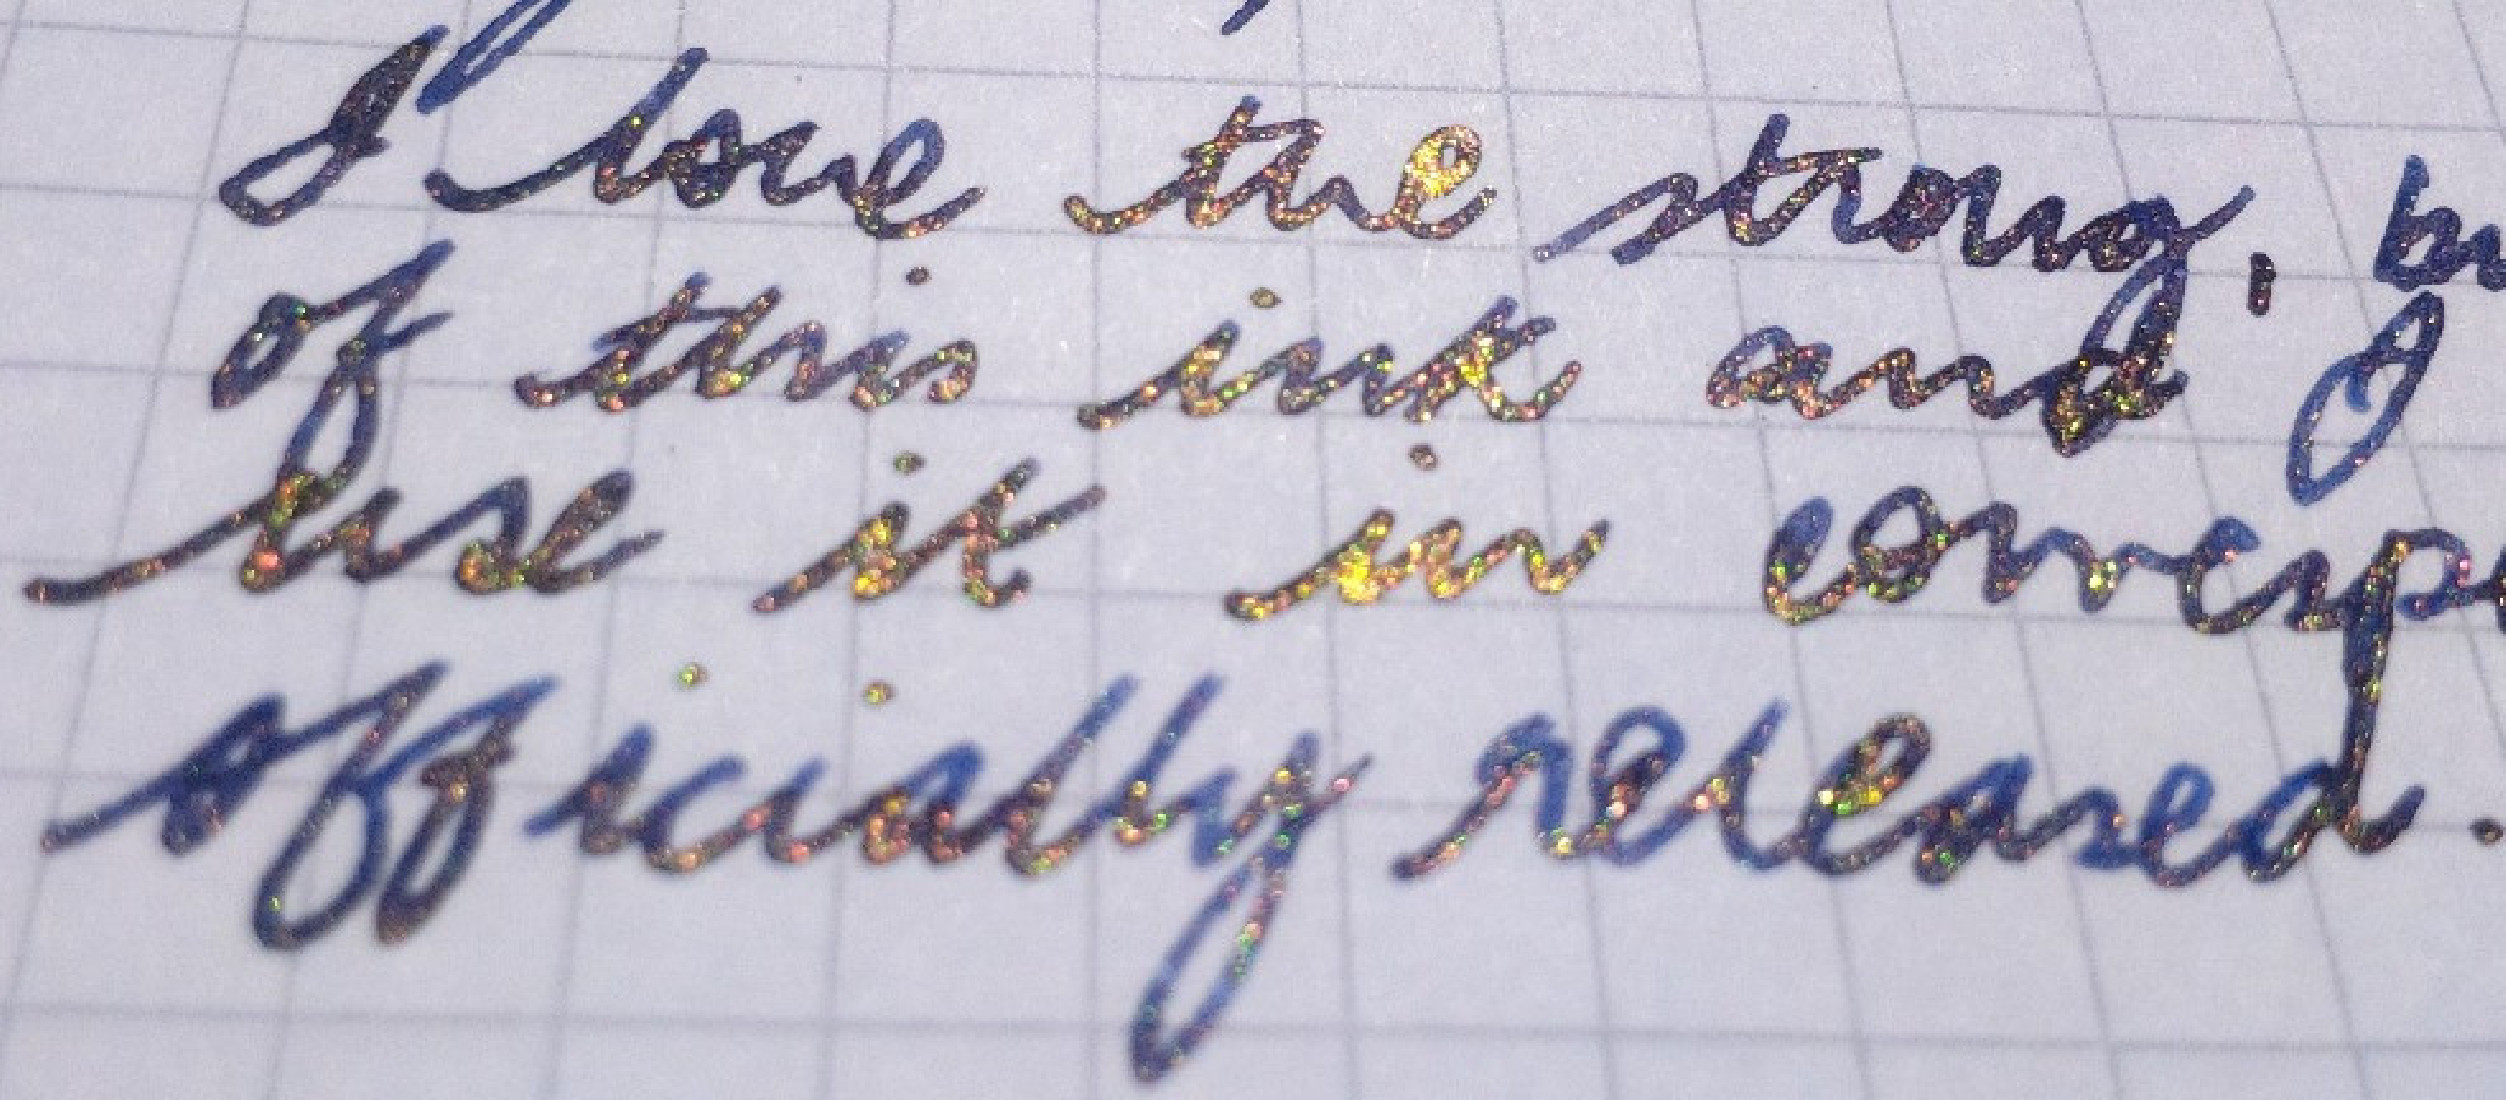 I love the strong, bu
of this ink and I
use it in corresp
officially released.